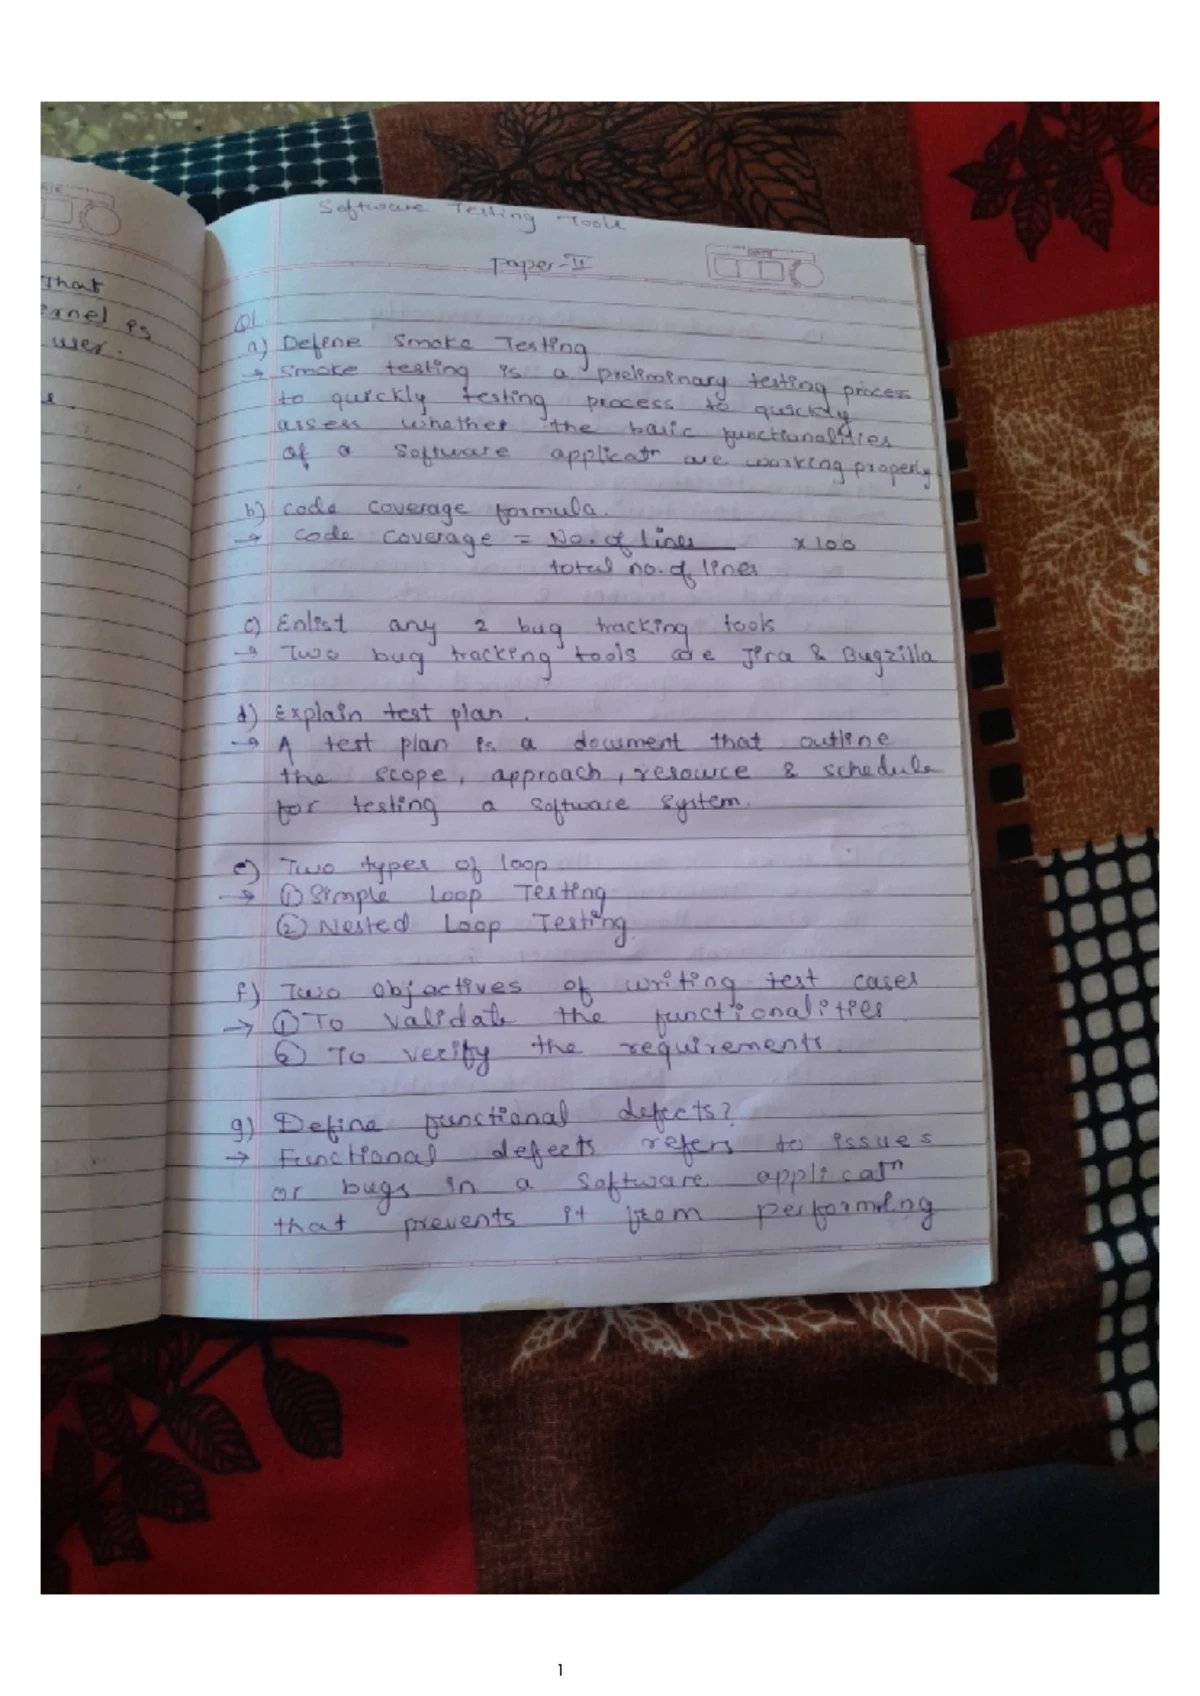 That
ernel is
user.
Software Testing Tools
Paper-II
DATE
Q1
a) Define Smoke Testing
→ Smoke testing is a preliminary testing process
to quickly testing process to quickly
assess whether the basic functionalities
of a software applicatn are working properly
b) code coverage formula.
→ code coverage = No. of lines x 100
total no. of lines
c) Enlist any 2 bug tracking tools
→ Two bug tracking tools are Jira & Bugzilla
d) Explain test plan.
→ A test plan is a document that outline
the scope, approach, resource & schedule
for testing a software system.
e) Two types of loop
→ ① Simple Loop Testing
② Nested Loop Testing.
f) Two objectives of writing test cases
→ ① To validate the functionalities
② To verify the requirements.
g) Define functional defects?
→ Functional defects refers to issues
or bugs in a software applicatn
that prevents it from performing
1